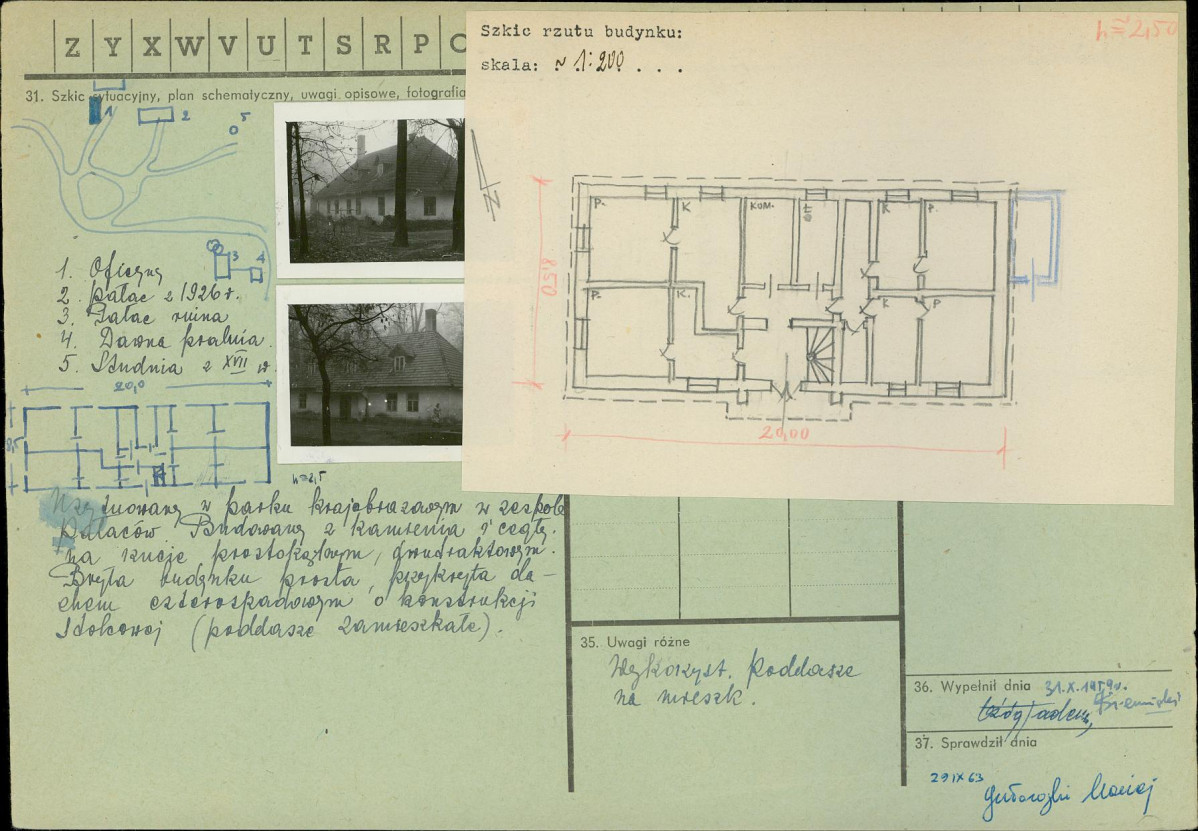 Z Y X W V U T S R P O
31. Szkic sytuacyjny, plan schematyczny, uwagi opisowe, fotografia
1
2
5
3
4
1. Oficyna
2. pałac z 1926 r.
3. Pałac ruina
4. Dawna pralnia.
5. Studnia z XVII w
20,0
8,5
h=2,5
Usytuowany w parku krajobrazowym w zespole
Pałaców. Budowany z kamienia i cegły.
na rzucie prostokątnym, dwutraktowym.
Bryła budynku prosta, przykryta da-
chem czterospadowym o konstrukcji
stolcowej (poddasze zamieszkałe).
Szkic rzutu budynku:
skala: ~ 1:200 . . .
h≅2,50
N
8,50
P. K KOM. Ł K P.
P. K. K P
20,00
35. Uwagi różne
Wykorzyst. poddasze
na mieszk.
36. Wypełnił dnia 31.X.1959r.
37. Sprawdził dnia
29 IX 63
Maciej